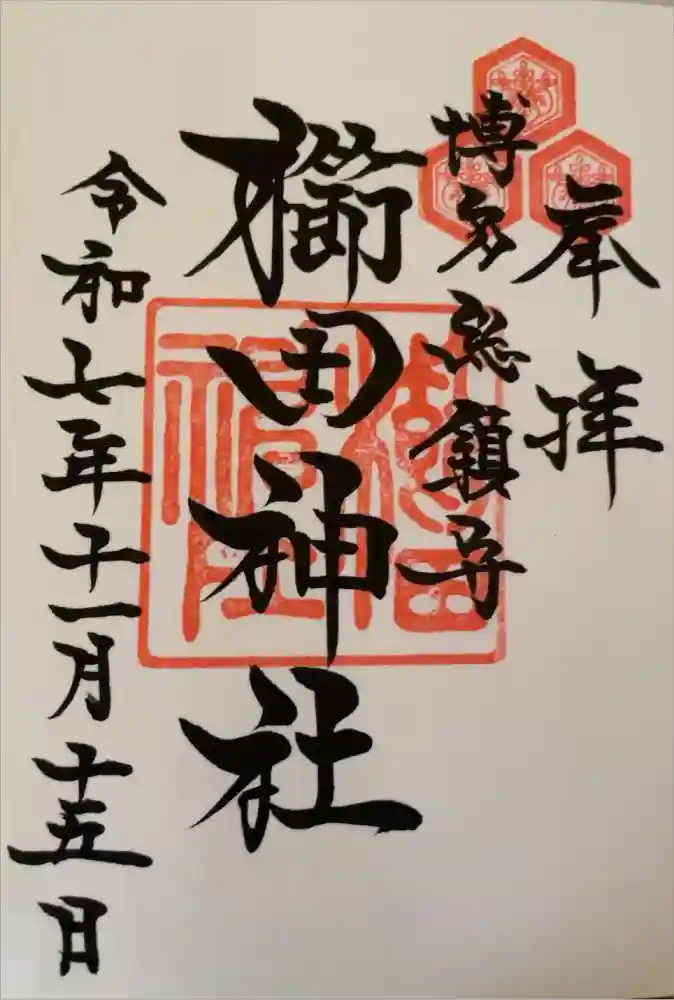 奉拝
博多総鎮守
櫛田神社
令和七年十一月十五日
櫛田
神社